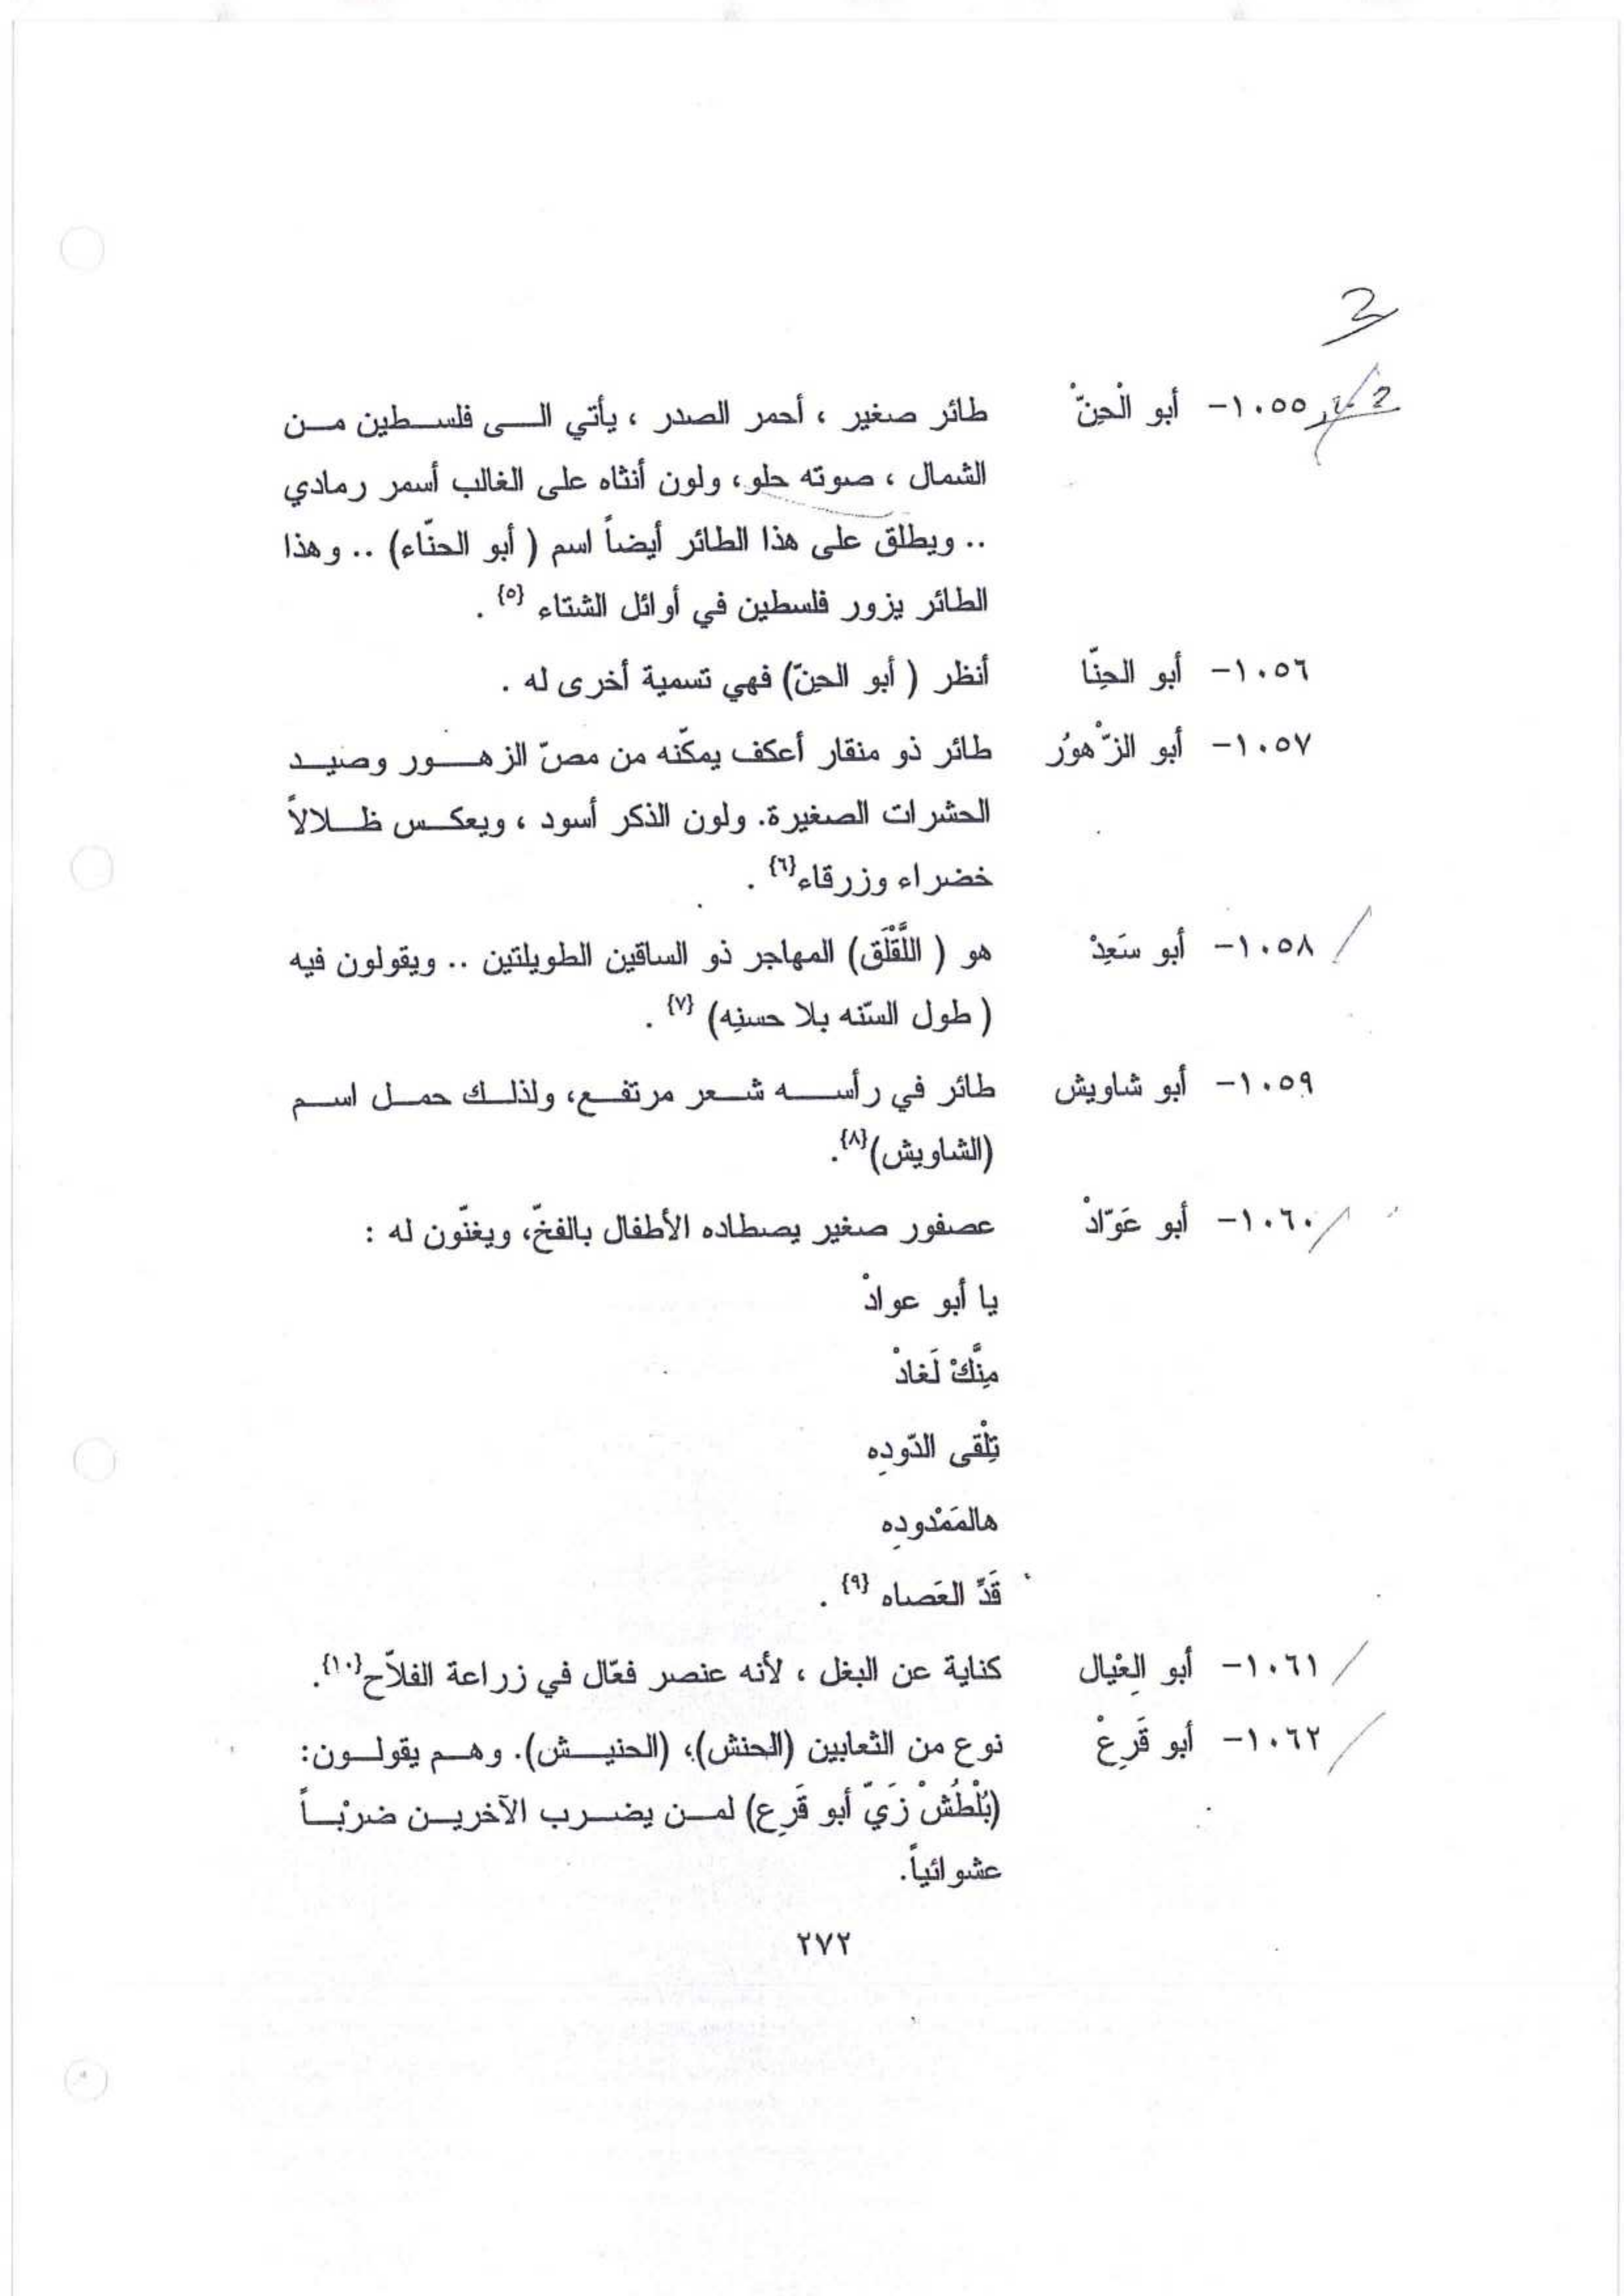 ١٠٥٥- أبو الْحِنّْ طائر صغير ، أحمر الصدر ، يأتي الى فلسطين من
الشمال ، صوته حلو، ولون أنثاه على الغالب أسمر رمادي
.. ويطلق على هذا الطائر أيضاً اسم ( أبو الحنّاء) .. وهذا
الطائر يزور فلسطين في أوائل الشتاء {٥} .
١٠٥٦- أبو الحِنّا أنظر ( أبو الحِنّ) فهي تسمية أخرى له .
١٠٥٧- أبو الزّْهورُ طائر ذو منقار أعكف يمكّنه من مصّ الزهور وصيد
الحشرات الصغيرة. ولون الذكر أسود ، ويعكس ظلالاً
خضراء وزرقاء{٦} .
١٠٥٨- أبو سَعِدْ هو ( اللَّقْلَق) المهاجر ذو الساقين الطويلتين .. ويقولون فيه
( طول السّنه بلا حسنِه) {٧} .
١٠٥٩- أبو شاويش طائر في رأسه شعر مرتفع، ولذلك حمل اسم
(الشاويش){٨}.
١٠٦٠- أبو عَوّادْ عصفور صغير يصطاده الأطفال بالفخّ، ويغنّون له :
يا أبو عوادْ
مِنَّكْ لَغادْ
تِلْقى الدّودِه
هالمَمْدودِه
قَدِّ العَصاه {٩} .
١٠٦١- أبو العِْيال كناية عن البغل ، لأنه عنصر فعّال في زراعة الفلاّح{١٠}.
١٠٦٢- أبو قَرِعْ نوع من الثعابين (الحنش)؛ (الحنيش). وهم يقولون:
(بُلْطُشْ زَيّ أبو قَرِع) لمن يضرب الآخرين ضرْباً
عشوائياً.
٢٧٢